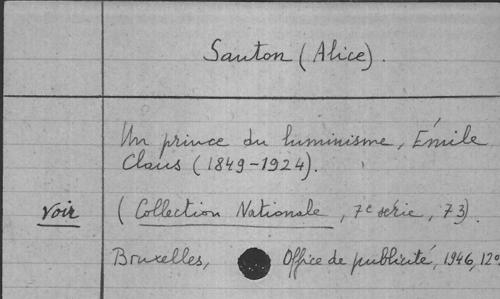 Sauton (Alice).
Un prince du luminisme, Émile
Claus (1849-1924).
voir (Collection Nationale, 7e série, 73).
Bruxelles, Office de publicité, 1946, 12°